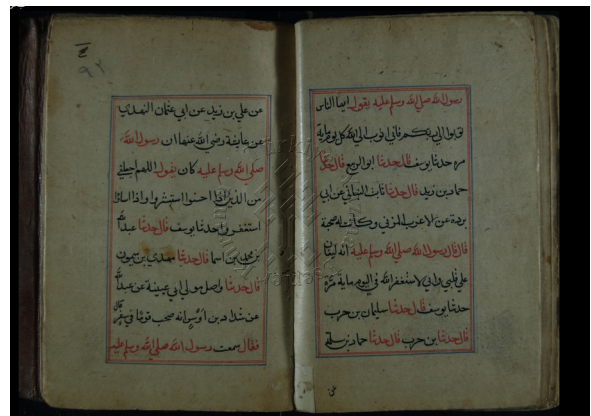 رسول الله صلى الله وسلم عليه يقول ايها الناس
توبوا الى ربكم فاني اتوب الى الله كل يوم مائة
مره حدثنا يوسف قال حدثنا ابو الربيع قال حدثنا
حماد بن زيد قال حدثنا ثابت البناني عن ابي
بردة عن الاغر المزني وكانت له صحبة
قال قال رسول الله صلى الله وسلم عليه انه ليغان
على قلبي واني لاستغفر الله في اليوم ماية مرة
حدثنا يوسف قال حدثنا سليمان بن حرب
قال حدثنا بن حرب قال حدثنا حماد بن سلمة
عن
عن علي بن زيد عن ابي عثمان النهدي
عن عايشة رضي الله عنها ان رسول الله
صلى الله وسلم عليه كان يقول اللهم اجعلني
من الذين اذا احسنوا استبشروا واذا اساؤا
استغفروا حدثنا يوسف قال حدثنا عبدالله
بن محمد بن اسما قال حدثنا مهدي بن ميمون
قال حدثنا واصل مولى ابي عيينة عن
عن شداد بن اوس انه صحب قوما في سفر قال
فقال سمعت رسول الله صلى الله وسلم عليه
٩٢